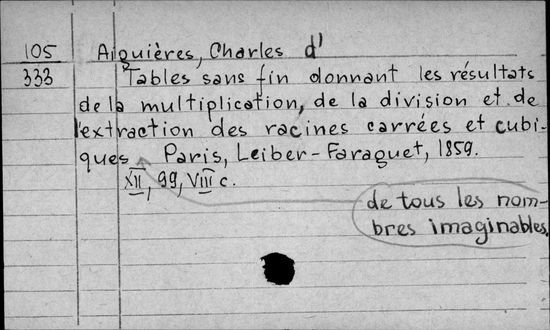 105 Aiguières, Charles d'
333 Tables sans fin donnant les résultats
de la multiplication, de la division et de
l'extraction des racines carrées et cubi-
ques Paris, Leiber-Faraguet, 1859.
XII, 99, VIII c.
de tous les nom-
bres imaginables.